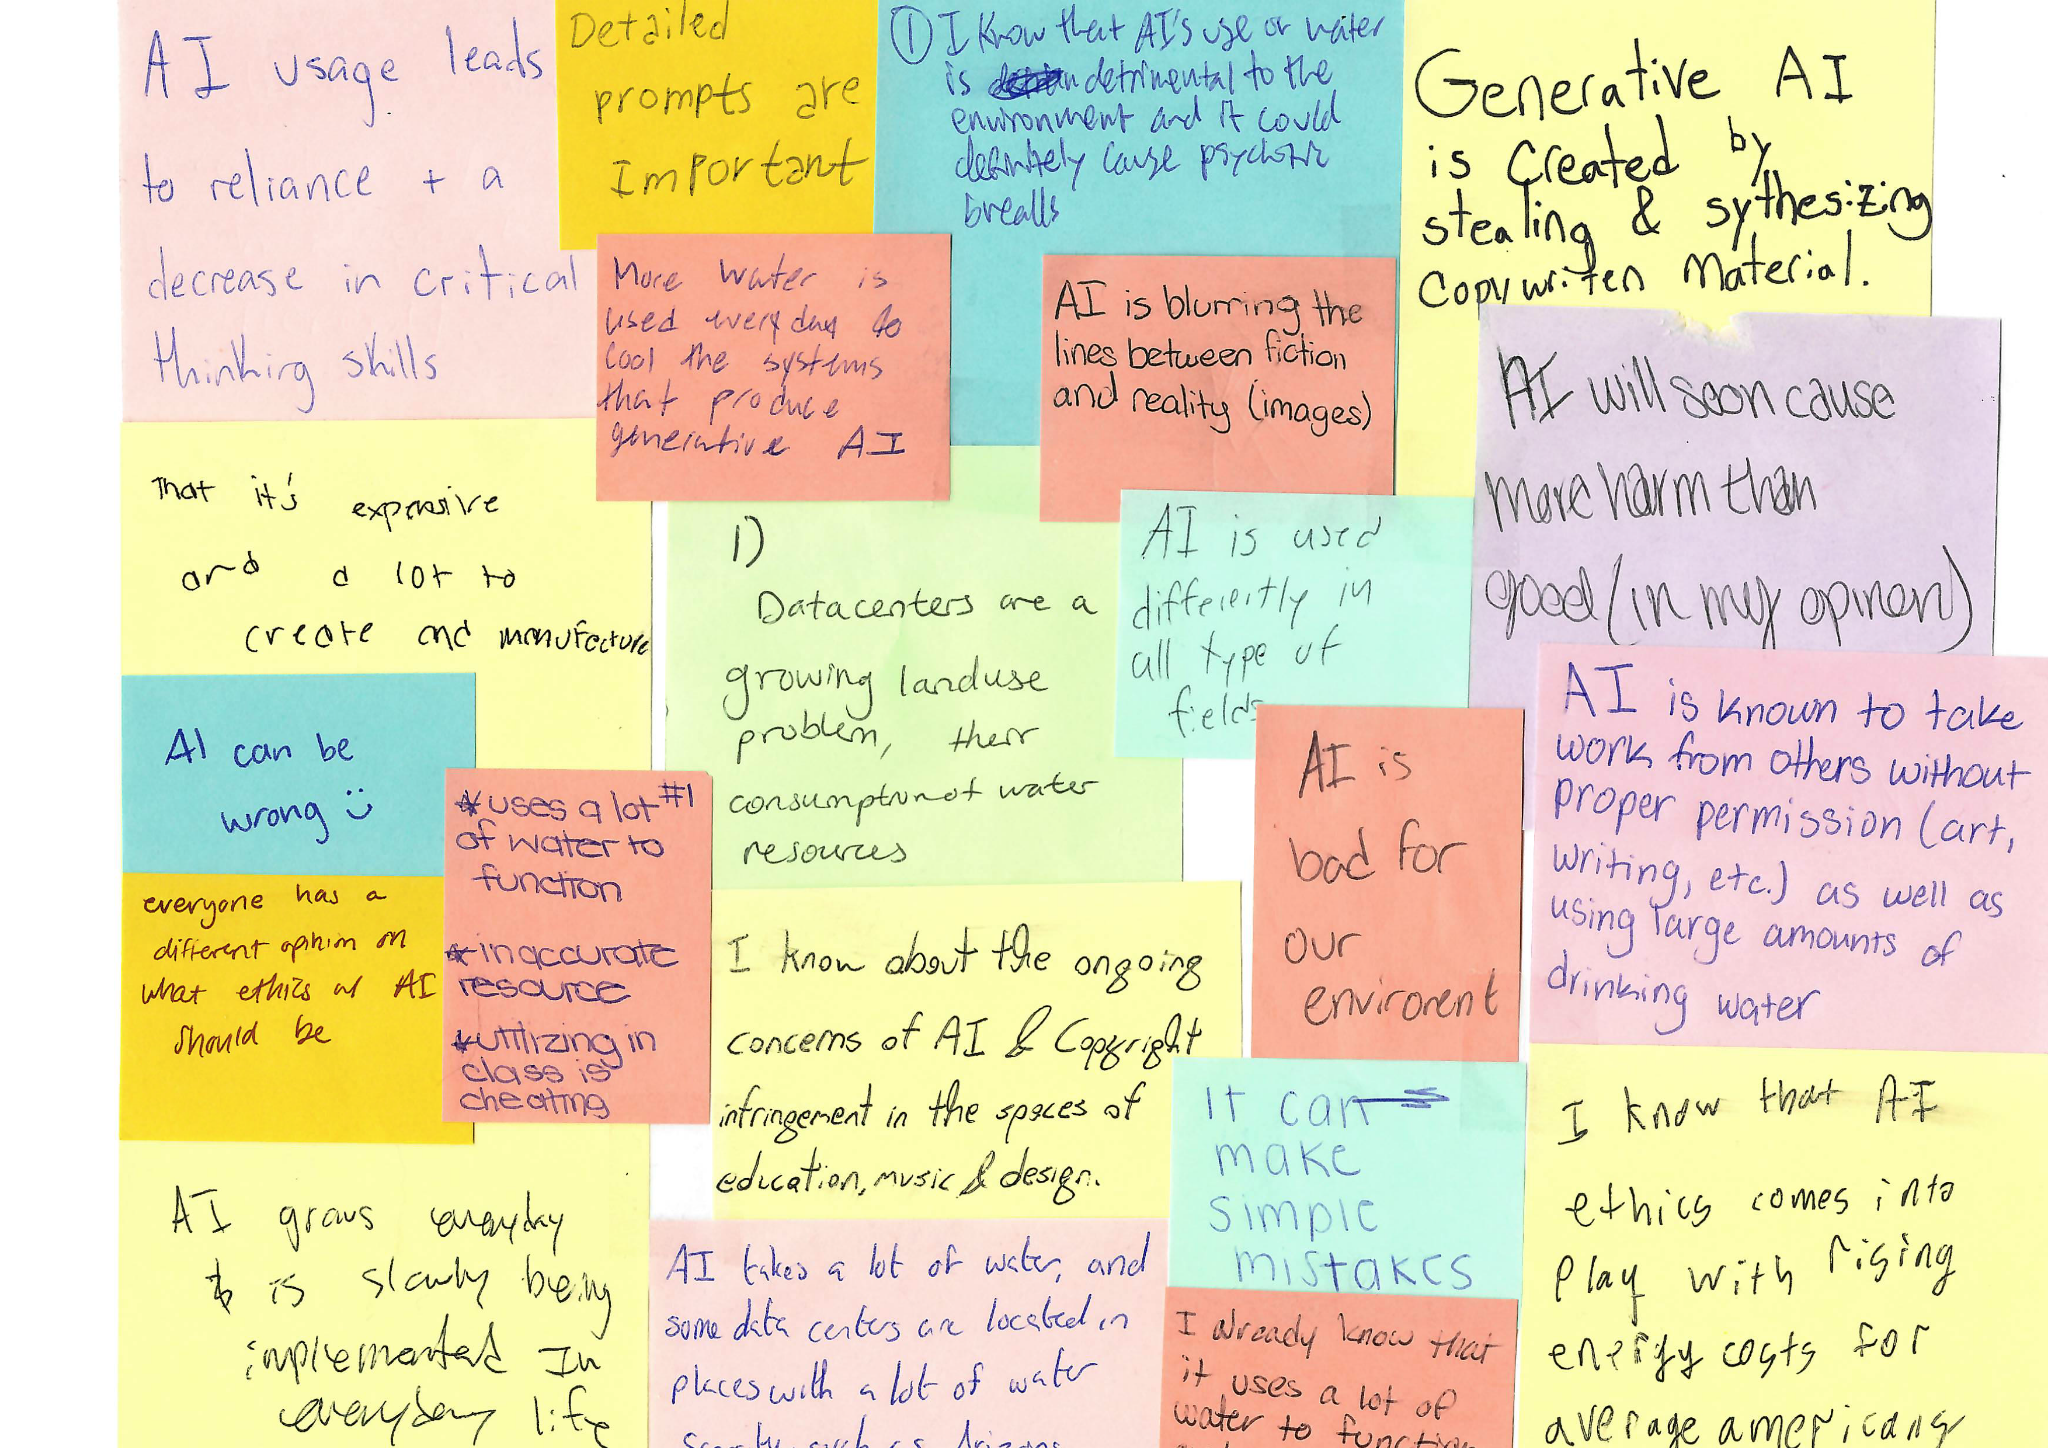 AI usage leads
to reliance + a
decrease in critical
thinking skills
Detailed
prompts are
Important
① I know that AI's use of water
is detrimental to the
environment and it could
definitely cause psychotic
breaks
Generative AI
is created by
stealing & sythesizing
Copywriten Material.
More water is
used everyday to
cool the systems
that produce
generative AI
AI is blurring the
lines between fiction
and reality (images)
AI will soon cause
more harm than
good (in my opinion)
That it's expensive
and a lot to
create and manufacture
1)
Datacenters are a
growing landuse
problem, their
consumption of water
resources
AI is used
differently in
all type of
fields
AI can be
wrong :)
*uses a lot #1
of water to
function
*inaccurate
resource
*utilizing in
class is
cheating
AI is
bad for
our
enviroment
AI is known to take
work from others without
proper permission (art,
writing, etc.) as well as
using large amounts of
drinking water
everyone has a
different opinion on
what ethics of AI
should be
I know about the ongoing
concerns of AI & Copyright
infringement in the spaces of
education, music & design.
It can →
make
simple
mistakes
I know that AI
ethics comes into
play with rising
energy costs for
average americans
AI grows everyday
& is slowly being
implemented In
everyday life
AI takes a lot of water, and
some data centers are located in
places with a lot of water
scarcity such as Arizona
I already know that
it uses a lot of
water to function